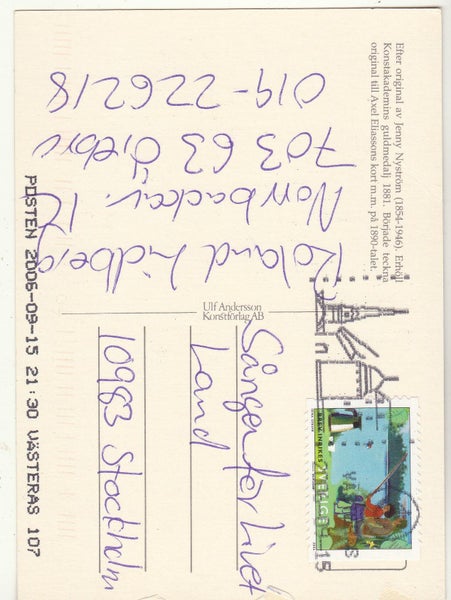 Efter original av Jenny Nyström (1854-1946). Erhöll
Konstakademins guldmedalj 1881. Började teckna
original till Axel Eliassons kort m.m. på 1890-talet.
Roland Lidberg
Norrbackav.
703 63 Örebro
019-226218
Ulf Andersson
Konstförlag AB
BREV INRIKES
SVERIGE
15
Sången för Livet
Land
10983 Stockholm
POSTEN 2006-09-15 21:30 VÄSTERÅS 107